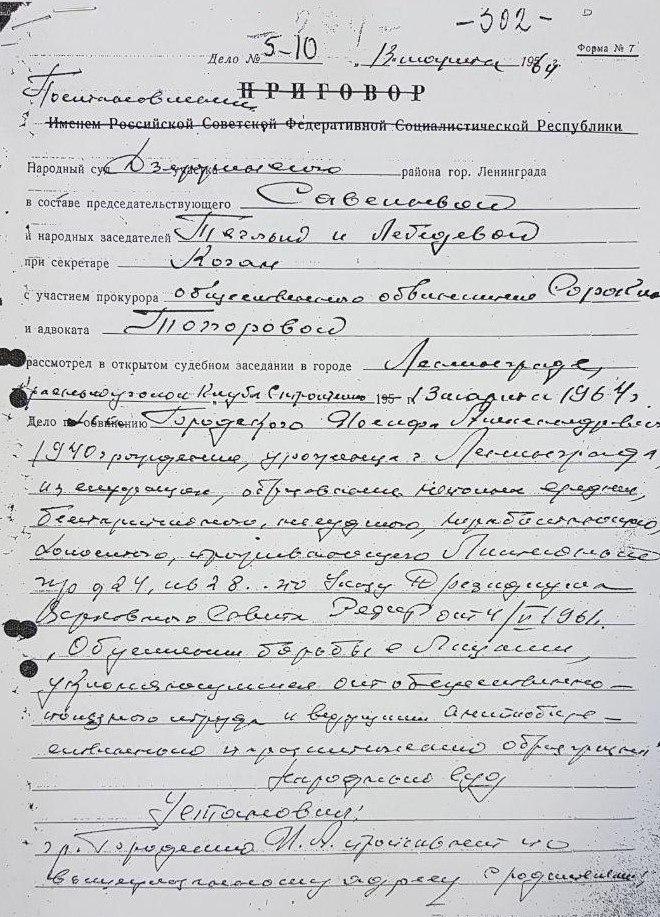 -302-
Дело № 5-10 „13 марта 1964 г.
Форма № 7
Постановление
ПРИГОВОР
Именем Российской Советской Федеративной Социалистической Республики
Народный суд Дзержинского района гор. Ленинграда
в составе председательствующего Савельевой
и народных заседателей Тяглый и Лебедевой
при секретаре Коган
с участием прокурора общественного обвинителя Сорокин
и адвоката Топоровой
рассмотрел в открытом судебном заседании в городе Ленинграде,
Клуба 195 г. 13 марта 1964 г.
Дело по обвинению Бродского Иосифа Александрович
1940 г. рождения, уроженца г. Ленинграда,
из служащих, образование
беспартийного, несудимого,
холостого, проживающего Литейный
пр д 24, кв 28. по Указу Президиума
Верховного Совета РСФСР от 4/V 1961.
„Об усилении борьбы с лицами,
уклоняющимися от общественно-
полезного труда и ведущими антиобще-
ственный паразитический образ жизни"
Народный суд
Установил:
гр. Бродский И. А. проживает по
вышеуказанному адресу с родителями,